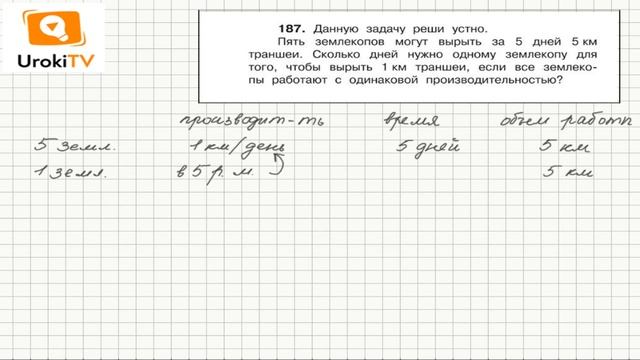 UrokiTV
187. Данную задачу реши устно.
Пять землекопов могут вырыть за 5 дней 5 км
траншеи. Сколько дней нужно одному землекопу для
того, чтобы вырыть 1 км траншеи, если все землеко-
пы работают с одинаковой производительностью?
производит-ть время объем работы
5 земл. 1 км/день 5 дней 5 км
1 земл. в 5 р. м. 5 км